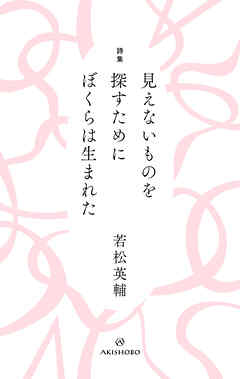 詩集
見えないものを
探すために
ぼくらは生まれた
若松英輔
AKISHOBO